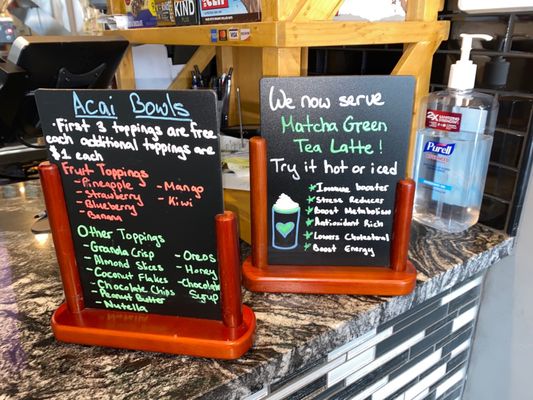 KIND
VISA
Acai Bowls
- First 3 toppings are free
each additional toppings are
$1 each
Fruit Toppings
- Pineapple
- Strawberry
- Blueberry
- Banana
- Mango
- Kiwi
Other Toppings
- Granola Crisp
- Almond Slices
- Coconut Flakes
- Chocolate Chips
- Peanut Butter
- Nutella
- Oreos
- Honey
- Chocolate
Syrup
We now serve
Matcha Green
Tea Latte!
Try it hot or iced
Immune booster
Stress Reducer
Boost Metabolism
Antioxidant Rich
Lowers Cholesterol
Boost Energy
2X
Purell
ADVANCED